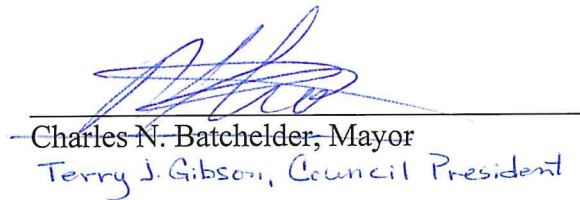 Charles N. Batchelder, Mayor
Terry J. Gibson, Council President